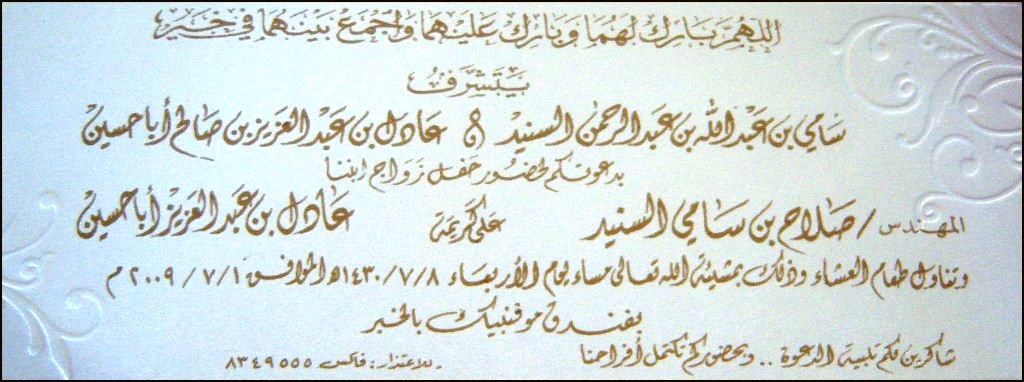 اللهم بارك لهما وبارك عليهما واجمع بينهما في خير
يتشرف
سامي بن عبدالله بن عبدالرحمن السنيد و عادل بن عبدالعزيز بن صالح أباحسين
بدعوتكم لحضور حفل زواج ابننا
المهندس / صلاح بن سامي السنيد على كريمة عادل بن عبدالعزيز أباحسين
وتناول طعام العشاء وذلك بمشيئة الله تعالى مساء يوم الأربعاء ١٤٣٠/٧/٨هـ الموافق ٢٠٠٩/٧/١م
بفندق موفنبيك بالخبر
شاكرين لكم تلبية الدعوة .. وبحضوركم تكتمل أفراحنا
للاعتذار: فاكس ٨٣٤٩٥٥٥